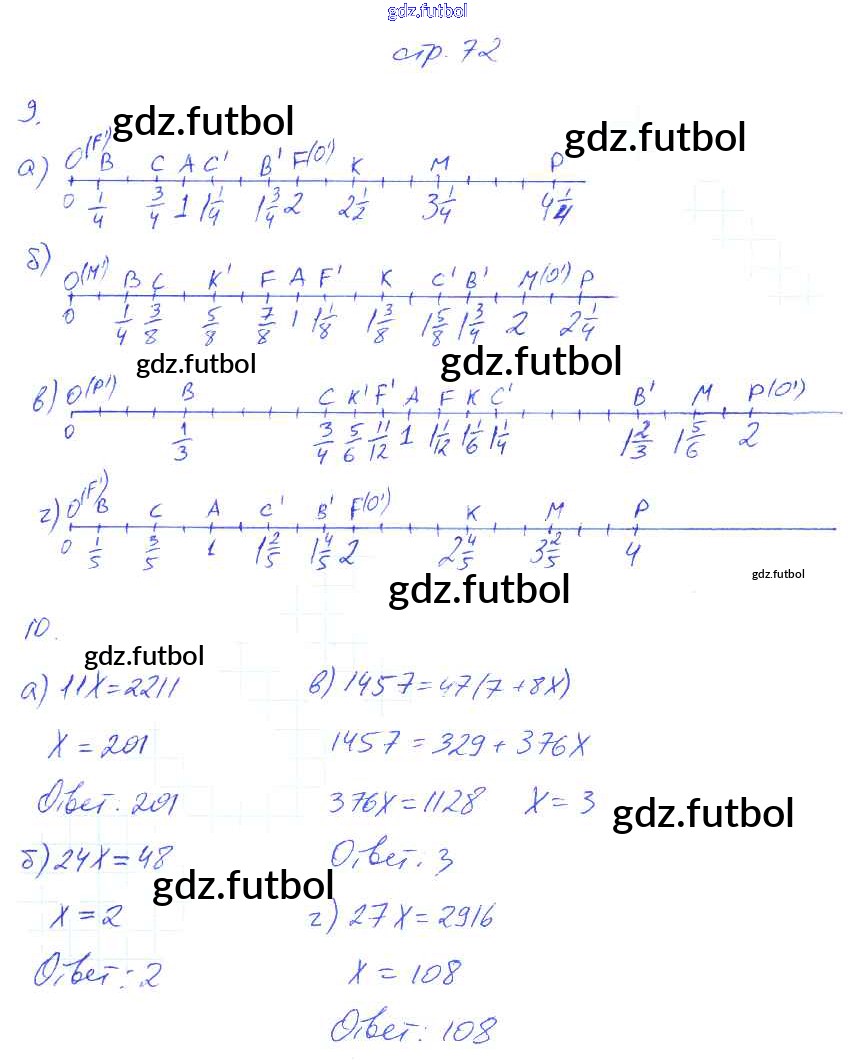 gdz.futbol
стр. 72
9.
gdz.futbol
gdz.futbol
а) O(F') B C A C' B' F(O') K M P
0 1/4 3/4 1 1 1/4 1 3/4 2 2 1/2 3 1/4 4 1/4
б) O(M') B C K' F A F' K C' B' M(O') P
0 1/4 3/8 5/8 7/8 1 1 1/8 1 3/8 1 5/8 1 3/4 2 2 1/4
gdz.futbol
gdz.futbol
в) O(P') B C K' F' A F K C' B' M P(O')
0 1/3 3/4 5/6 11/12 1 1 1/12 1 1/6 1 1/4 1 2/3 1 5/6 2
г) O(F') B C A C' B' F(O') K M P
0 1/5 3/5 1 1 2/5 1 4/5 2 2 4/5 3 2/5 4
gdz.futbol
gdz.futbol
10.
gdz.futbol
а) 11X=2211
X = 201
Ответ: 201
б) 24X=48
gdz.futbol
X=2
Ответ: 2
в) 1457=47(7+8X)
1457=329+376X
376X=1128 X=3
gdz.futbol
Ответ: 3
г) 27X=2916
X = 108
Ответ: 108